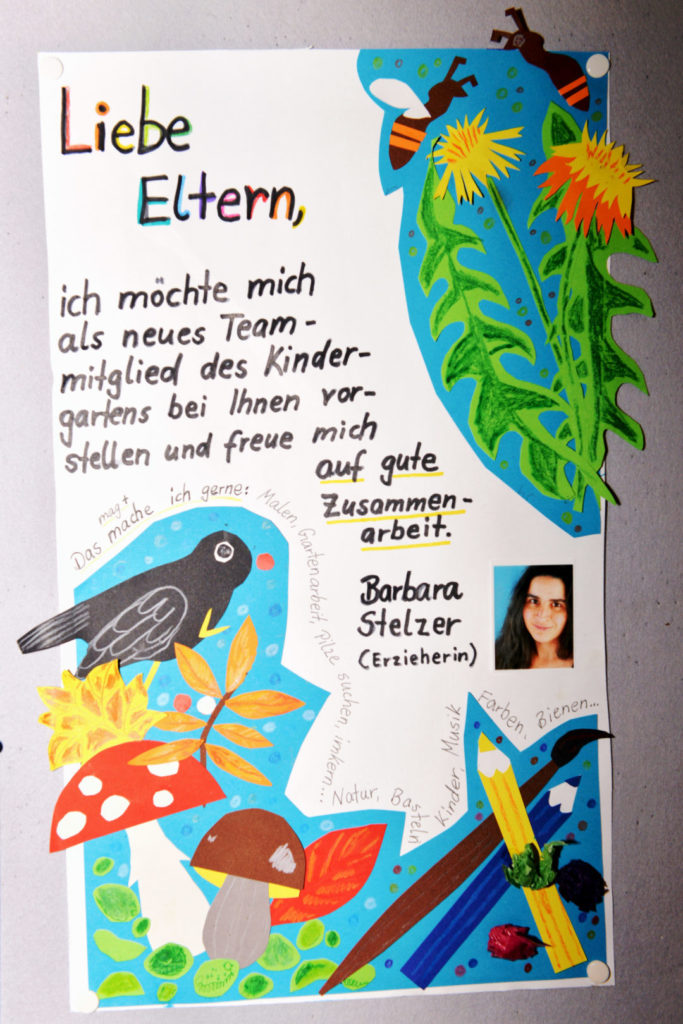 Liebe
Eltern,
ich möchte mich
als neues Team-
mitglied des Kinder-
gartens bei Ihnen vor-
stellen und freue mich
auf gute
Zusammen-
arbeit.
Barbara
Stelzer
(Erzieherin)
mag +
Das mache ich gerne: Malen, Gartenarbeit, Pilze suchen, imkern...
Natur, Basteln
Kinder, Musik
Farben, Bienen...